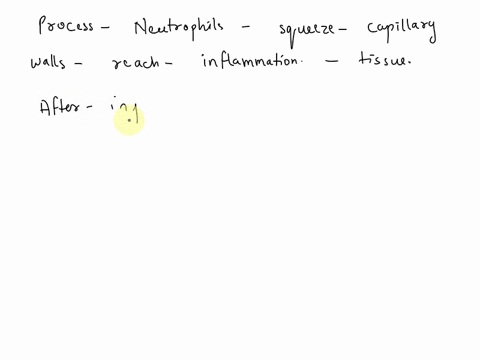 Process - Neutrophils - squeeze - capillary
walls - reach - inflammation. - tissue.
After - inj